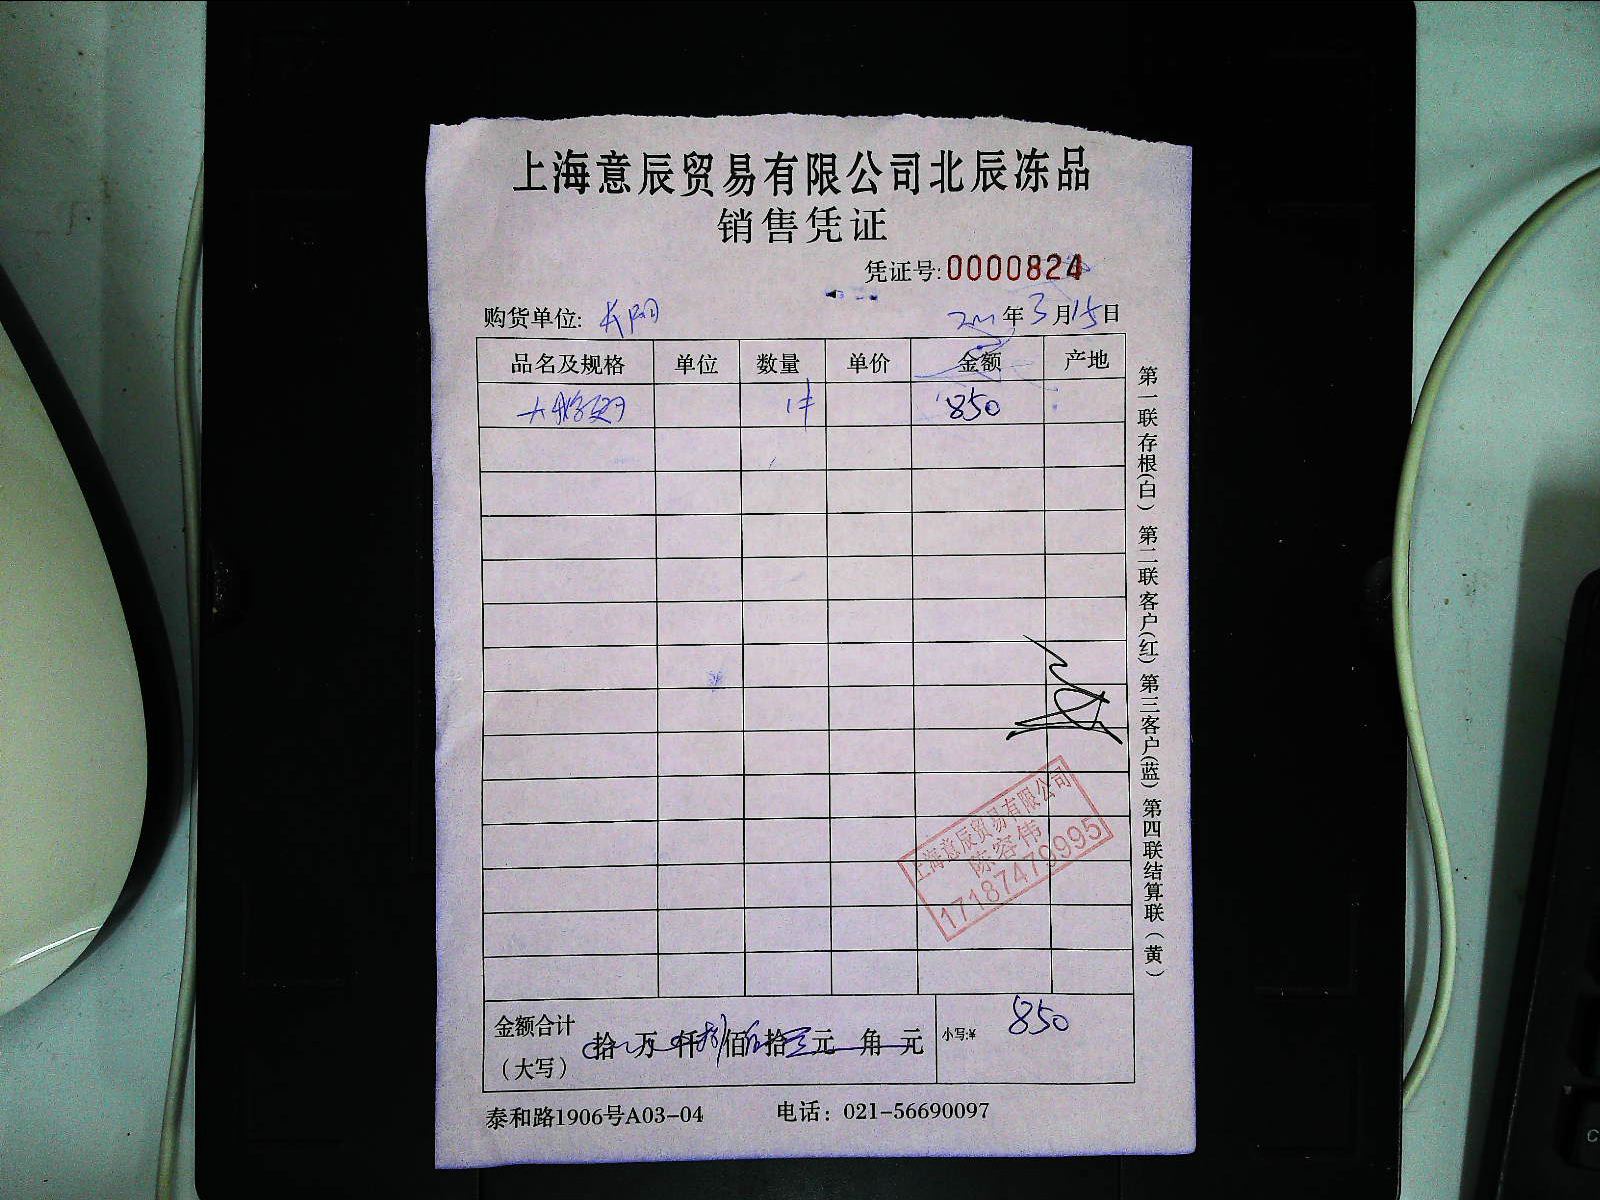 上海意辰贸易有限公司北辰冻品
销售凭证
凭证号:0000824
购货单位: 年3月15日
品名及规格 单位 数量 单价 金额 产地
1件 850
金额合计(大写) 拾万仟佰拾元角元 小写:¥ 850
泰和路1906号A03-04 电话：021-56690097
第一联存根(白) 第二联客户(红) 第三客户(蓝) 第四联结算联(黄)
上海意辰贸易有限公司
陈容伟
17187479995